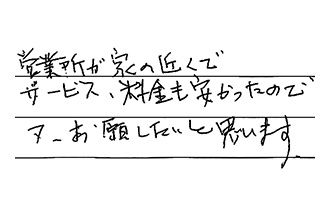 営業所が家の近くで
サービス、料金も安かったので
又、お願したいと思います